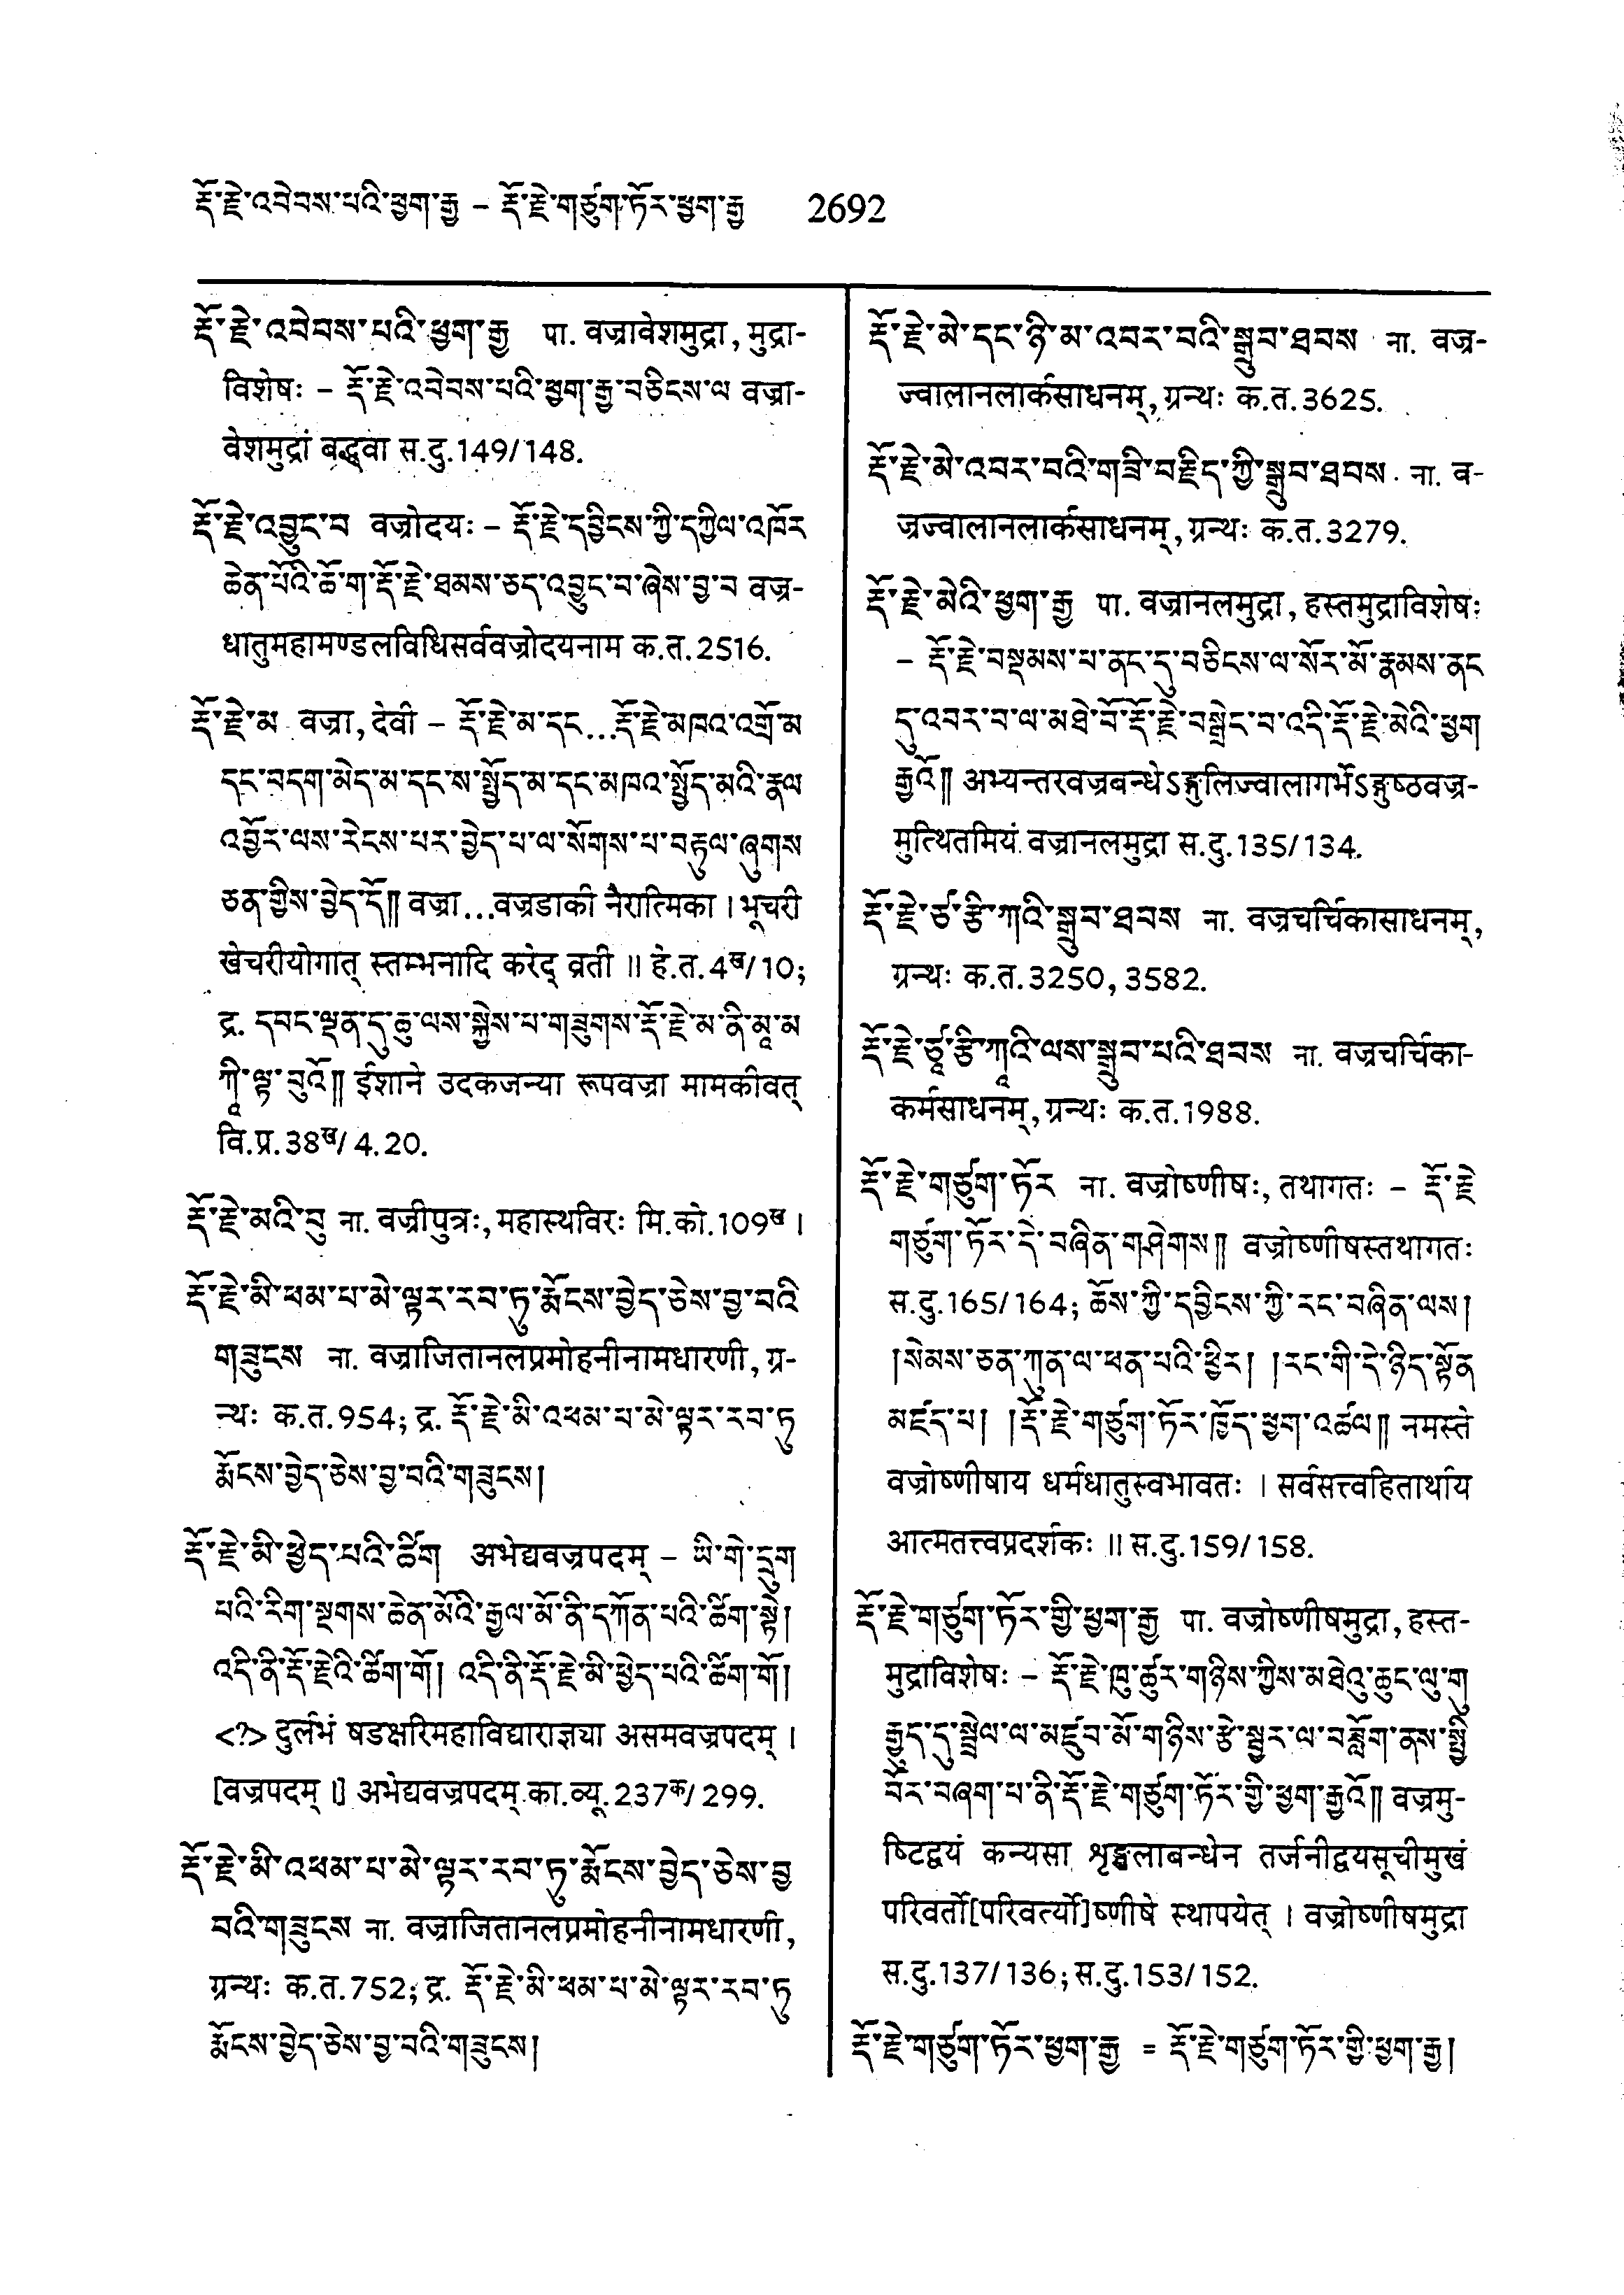 རྡོ་རྗེ་འབེབས་པའི་ཕྱག་རྒྱ – རྡོ་རྗེ་གཙུག་ཏོར་ཕྱག་རྒྱ 2692
རྡོ་རྗེ་འབེབས་པའི་ཕྱག་རྒྱ पा. वज्रावेशमुद्रा, मुद्रा-
विशेषः – རྡོ་རྗེ་འབེབས་པའི་ཕྱག་རྒྱ་བཅིངས་ལ वज्रा-
वेशमुद्रां बद्ध्वा स.दु.149/148.
རྡོ་རྗེ་འབྱུང་བ वज्रोदयः – རྡོ་རྗེ་དབྱིངས་ཀྱི་དཀྱིལ་འཁོར
ཆེན་པོའི་ཆོ་ག་རྡོ་རྗེ་ཐམས་ཅད་འབྱུང་བ་ཞེས་བྱ་བ वज्र-
धातुमहामण्डलविधिसर्ववज्रोदयनाम क.त.2516.
རྡོ་རྗེ་མ वज्रा, देवी – རྡོ་རྗེ་མ་དང...རྡོ་རྗེ་མཁའ་འགྲོ་མ
དང་བདག་མེད་མ་དང་ས་སྤྱོད་མ་དང་མཁའ་སྤྱོད་མའི་རྣལ
འབྱོར་ལས་རེངས་པར་བྱེད་པ་ལ་སོགས་པ་བརྟུལ་ཞུགས
ཅན་གྱིས་བྱེད་དོ༎ वज्रा...वज्रडाकी नैरात्मिका । भूचरी
खेचरीयोगात् स्तम्भनादि करेद् व्रती ॥ हे.त.4ख/10;
द्र. དབང་ལྡན་དུ་ཆུ་ལས་སྐྱེས་པ་གཟུགས་རྡོ་རྗེ་མ་ནི་མཱ་མ
ཀཱི་ལྟ་བུའོ༎ ईशाने उदकजन्या रूपवज्रा मामकीवत्
वि.प्र.38ख/4.20.
རྡོ་རྗེ་མའི་བུ ना. वज्रीपुत्रः, महास्थविरः मि.को.109ख ।
རྡོ་རྗེ་མི་ཕམ་པ་མེ་ལྟར་རབ་ཏུ་རྨོངས་བྱེད་ཅེས་བྱ་བའི
གཟུངས ना. वज्राजितानलप्रमोहनीनामधारणी, ग्र-
न्थः क.त.954; द्र. རྡོ་རྗེ་མི་འཕམ་པ་མེ་ལྟར་རབ་ཏུ
རྨོངས་བྱེད་ཅེས་བྱ་བའི་གཟུངས།
རྡོ་རྗེ་མི་ཕྱེད་པའི་ཚིག अभेद्यवज्रपदम् – ཡི་གེ་དྲུག
པའི་རིག་སྔགས་ཆེན་མོའི་རྒྱལ་མོ་ནི་དཀོན་པའི་ཚིག་སྟེ།
འདི་ནི་རྡོ་རྗེའི་ཚིག་གོ། འདི་ནི་རྡོ་རྗེ་མི་ཕྱེད་པའི་ཚིག་གོ།
<?> दुर्लभं षडक्षरिमहाविद्याराज्ञ्या असमवज्रपदम् ।
[वज्रपदम् ।] अभेद्यवज्रपदम् का.व्यू.237क/299.
རྡོ་རྗེ་མི་འཕམ་པ་མེ་ལྟར་རབ་ཏུ་རྨོངས་བྱེད་ཅེས་བྱ
བའི་གཟུངས ना. वज्राजितानलप्रमोहनीनामधारणी,
ग्रन्थः क.त.752; द्र. རྡོ་རྗེ་མི་ཕམ་པ་མེ་ལྟར་རབ་ཏུ
རྨོངས་བྱེད་ཅེས་བྱ་བའི་གཟུངས།
རྡོ་རྗེ་མེ་དང་ཉི་མ་འབར་བའི་སྒྲུབ་ཐབས ना. वज्र-
ज्वालानलार्कसाधनम्, ग्रन्थः क.त.3625.
རྡོ་རྗེ་མེ་འབར་བའི་གཟི་བརྗིད་ཀྱི་སྒྲུབ་ཐབས ना. व-
ज्रज्वालानलार्कसाधनम्, ग्रन्थः क.त.3279.
རྡོ་རྗེ་མེའི་ཕྱག་རྒྱ पा. वज्रानलमुद्रा, हस्तमुद्राविशेषः
– རྡོ་རྗེ་བསྡམས་པ་ནང་དུ་བཅིངས་ལ་སོར་མོ་རྣམས་ནང
དུ་འབར་བ་ལ་མཐེ་བོ་རྡོ་རྗེ་བསྒྲེང་བ་འདི་རྡོ་རྗེ་མེའི་ཕྱག
རྒྱའོ༎ अभ्यन्तरवज्रबन्धेऽङ्गुलिज्वालागर्भेऽङ्गुष्ठवज्र-
मुत्थितमियं वज्रानलमुद्रा स.दु.135/134.
རྡོ་རྗེ་ཙ་རྩི་ཀའི་སྒྲུབ་ཐབས ना. वज्रचर्चिकासाधनम्,
ग्रन्थः क.त.3250, 3582.
རྡོ་རྗེ་ཙཱ་རྩི་ཀཱའི་ལས་སྒྲུབ་པའི་ཐབས ना. वज्रचर्चिका-
कर्मसाधनम्, ग्रन्थः क.त.1988.
རྡོ་རྗེ་གཙུག་ཏོར ना. वज्रोष्णीषः, तथागतः – རྡོ་རྗེ
གཙུག་ཏོར་དེ་བཞིན་གཤེགས༎ वज्रोष्णीषस्तथागतः
स.दु.165/164; ཆོས་ཀྱི་དབྱིངས་ཀྱི་རང་བཞིན་ལས།
།སེམས་ཅན་ཀུན་ལ་ཕན་པའི་ཕྱིར། །རང་གི་དེ་ཉིད་སྟོན
མཛད་པ། །རྡོ་རྗེ་གཙུག་ཏོར་ཁྱོད་ཕྱག་འཚལ༎ नमस्ते
वज्रोष्णीषाय धर्मधातुस्वभावतः । सर्वसत्त्वहितार्थाय
आत्मतत्त्वप्रदर्शकः ॥ स.दु.159/158.
རྡོ་རྗེ་གཙུག་ཏོར་གྱི་ཕྱག་རྒྱ पा. वज्रोष्णीषमुद्रा, हस्त-
मुद्राविशेषः – རྡོ་རྗེ་ཁུ་ཚུར་གཉིས་ཀྱིས་མཐེའུ་ཆུང་ལུ་གུ
རྒྱུད་དུ་སྦྲེལ་ལ་མཛུབ་མོ་གཉིས་རྩེ་སྦྱར་ལ་བཟློག་ནས་སྤྱི
བོར་བཞག་པ་ནི་རྡོ་རྗེ་གཙུག་ཏོར་གྱི་ཕྱག་རྒྱའོ༎ वज्रमु-
ष्टिद्वयं कन्यसा शृङ्खलाबन्धेन तर्जनीद्वयसूचीमुखं
परिवर्तो[परिवर्त्यो]ष्णीषे स्थापयेत् । वज्रोष्णीषमुद्रा
स.दु.137/136; स.दु.153/152.
རྡོ་རྗེ་གཙུག་ཏོར་ཕྱག་རྒྱ = རྡོ་རྗེ་གཙུག་ཏོར་གྱི་ཕྱག་རྒྱ།